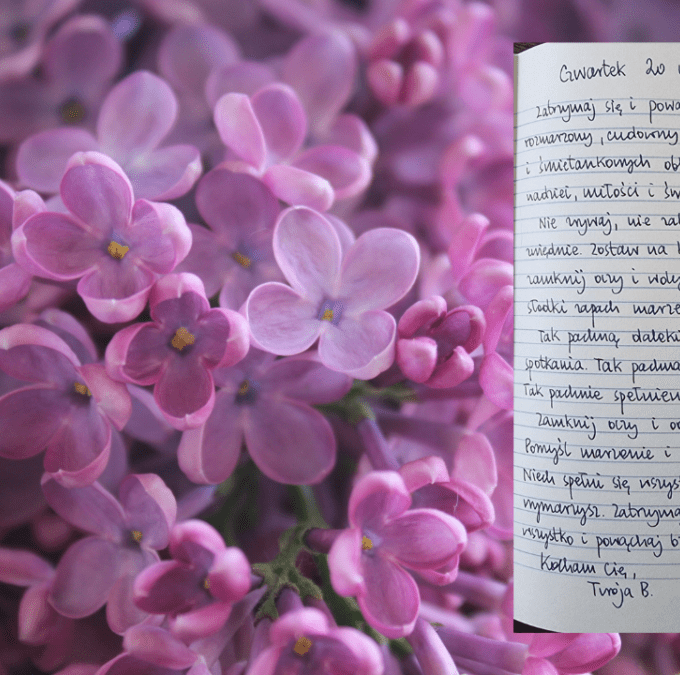 Czwartek 20
Zatrzymaj się i pową
rozmarzony, cudowny
i śmietankowych ob
nadziei, miłości i św
Nie zrywaj, nie zab
więdnie. Zostaw na k
zamknij oczy i wdyc
słodki zapach marze
Tak pachną dalekie
spotkania. Tak pachną
Tak pachnie spełnien
Zamknij oczy i od
Pomyśl marzenie i
Niech spełni się wszyst
wymarzysz. Zatrzymaj
wszystko i powąchaj b
Kocham Cię,
Twoja B.